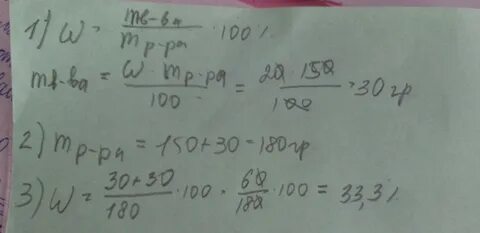 1) W = mв-ва / mр-ра · 100%
mв-ва = W · mр-ра / 100 = 20 · 150 / 100 = 30 гр
2) mр-ра = 150 + 30 = 180 гр
3) W = 30 + 30 / 180 · 100 = 60 / 180 · 100 = 33,3%